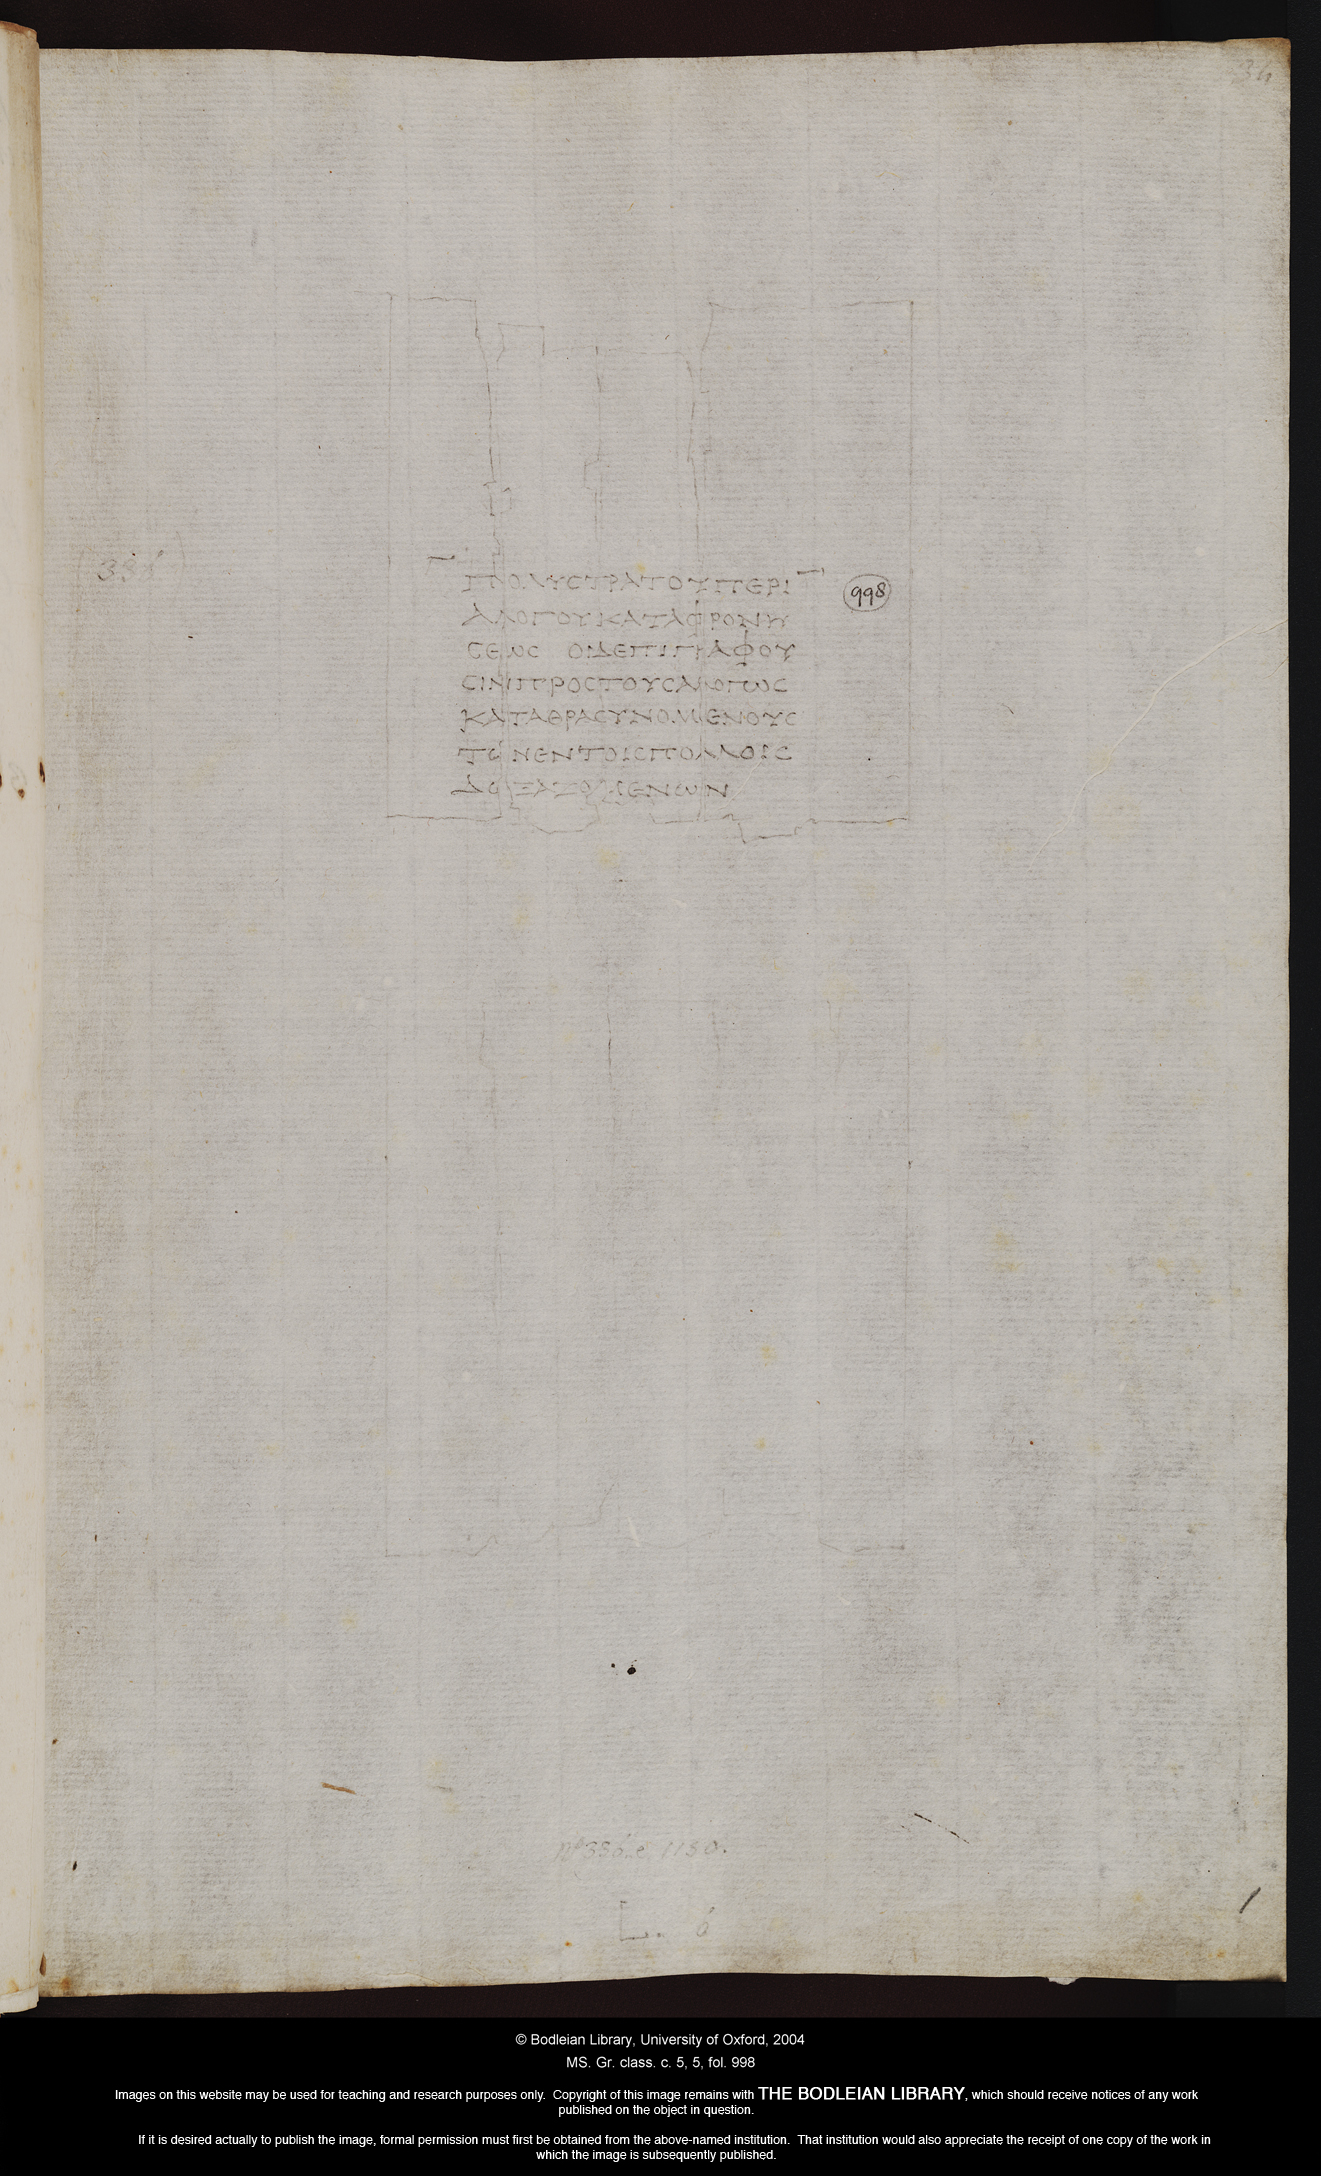 34
ΠΟΛΥΣΤΡΑΤΟΥΠΕΡΙ
998
ΑΛΟΓΟΥΚΑΤΑΦΡΟΝΗ
ϹΕΩϹ ΟΙΔΕΠΙΓΡΑΦΟΥ
ϹΙΝΠΡΟϹΤΟΥϹΑΛΟΓΩϹ
ΚΑΤΑΘΡΑϹΥΝΟΜΕΝΟΥϹ
ΤΩΝΕΝΤΟΙϹΠΟΛΛΟΙϹ
ΔΟΞΑΖΟΜΕΝΩΝ
Nº 336. e 1150.
L. 6
1
© Bodleian Library, University of Oxford, 2004
MS. Gr. class. c. 5, 5, fol. 998
Images on this website may be used for teaching and research purposes only. Copyright of this image remains with THE BODLEIAN LIBRARY, which should receive notices of any work
published on the object in question.
If it is desired actually to publish the image, formal permission must first be obtained from the above-named institution. That institution would also appreciate the receipt of one copy of the work in
which the image is subsequently published.